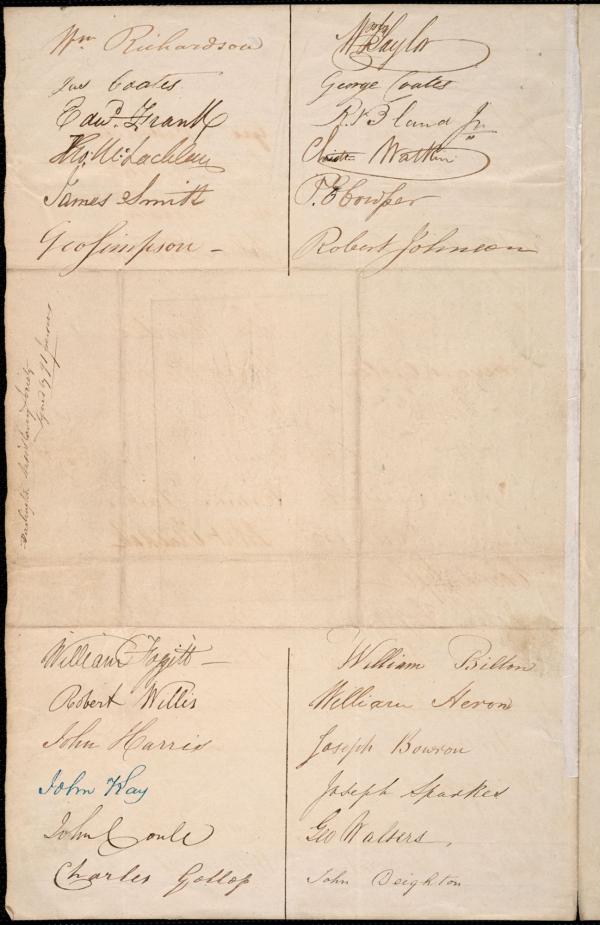 Wm Richardson
Jas Coates
Edwd. Frank
Tho. McLachlan
James Smith
Geo Simpson
Taylor
George Coates
R. Bland Jr
Watkin
T. E. Cowper
Robert Johnson
Darlington Society
Signed by 91 persons
William
Robert Willis
John Harris
John Kay
John Coule
Charles Gollop
William Bilton
William Heron
Joseph Bowron
Joseph Sparkes
Geo Walters.
John Deighton